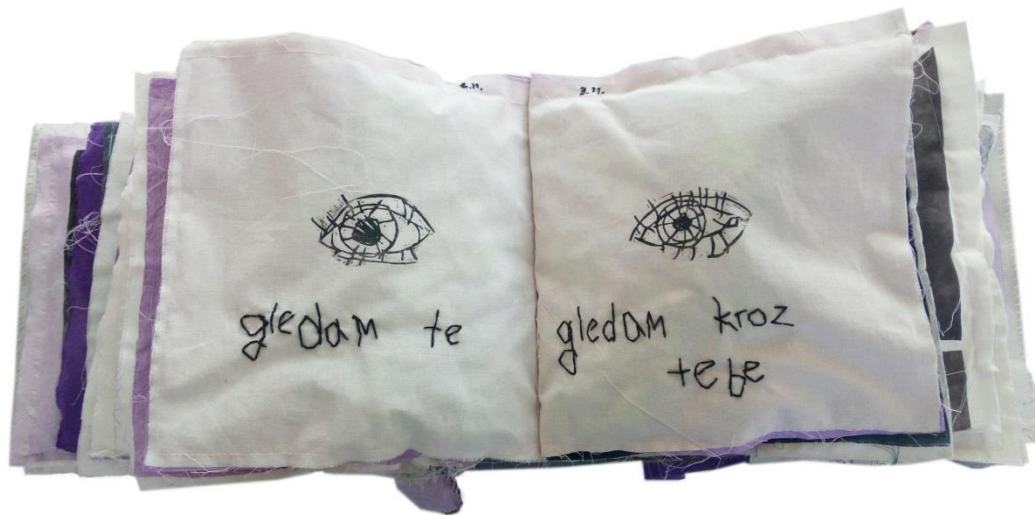 gledam te
gledam kroz
tebe